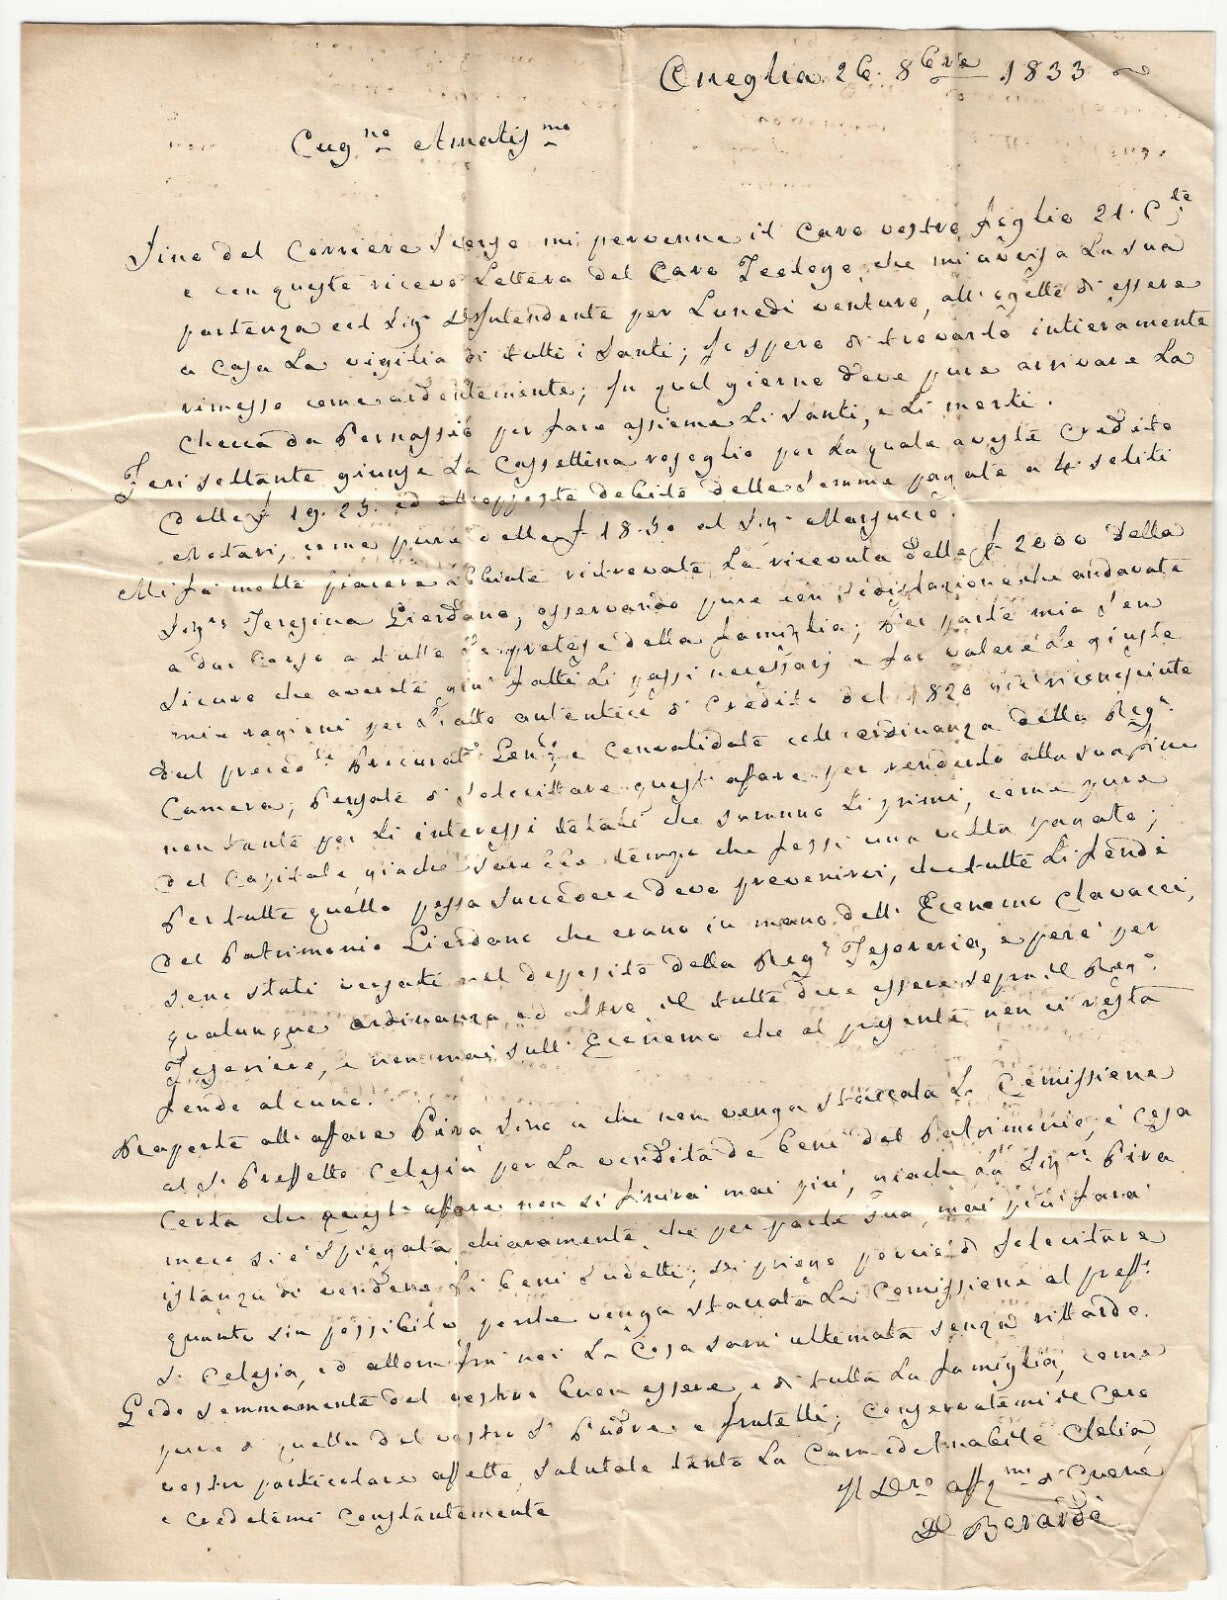 Oneglia 26. 8bre 1833
Cug.no Amatis.mo
Sino del Corriere scorso mi pervenne il caro vostro foglio 21. C.te
e con questo ricevo Lettera del Caro Teologo, che mi avvisa La sua
partenza col Sig.r Intendente per Lunedì venturo, all'ogetto di essere
a casa La vigilia di tutti i Santi; Io spero di trovarlo intieramente
rimesso come ardentemente; In quel giorno deve pure arrivare La
Checca da Pornassio per fare assieme Li Santi, e Li morti.
Jeri soltanto giunse La Cassettina rosoglio per La quale aveste Credito
delle £ 19. 25. ed all'opposto debito della somma pagata a 4. soliti
Notari, come pure delle £ 18. 50 al Sig.r
Mi fa molto piacere abbiate ritrovata La ricevuta delle £ 2000 della
Sig.ra Teresina Giordano, osservando pure con sodisfazione che andavate
a dar Corso a tutte Le pretese della famiglia; Per parte mia son
sicuro che avrete già fatti Li passi necessarj e far valere Le giuste
mie ragioni per L'atto autentico di Credito del 1820 già riconosciuto
dal preced.te Procurat.e Gen.le, e Convalidato coll'ordinanza della Reg.a
Camera; Pregate di solecittare quest'afare per renderlo alla sua fine
non tanto per Li interessi totali che saranno Li primi, come pure
del Capitale, giachè sarebbe tempo che fossi una volta pagato;
Per tutto quello possa succedere devo prevenirvi, che tutti Li fondi
del Patrimonio Giordano che erano in mano dell'Economo Clavacci,
sono stati versati nel deposito della Reg.a Tesoreria, e però per
qualunque ordinanza, od altro il tutto deve essere sopra il Reg.o
Tesoriere, e non mai sull'Economo che al presente non vi resta
fondo alcuno.
Raporto all'afare Piva sino a che non venga staccata La Comissione
al S.r Preffetto Celesia per La vendita de beni del Patrimonio, è cosa
certa che quest'afare non si finirà mai più, giachè La Sig.ra Piva
meco si è spiegata chiaramente che per parte sua mai più farà
istanza di vendere Li beni sudetti; vi prego perciò di solecitare
quanto sia possibile perchè venga staccata La Comissione al preff.o
di Celesia, ed allora frà noi La Cosa sarà ultimata senza rittardo.
Godo sommamente del vostro buon essere, e di tutta La famiglia, come
pure di quella del vostro S.r Padre e fratelli; Conservatemi il Caro
vostro particolare affetto, salutate tanto La Cara ed Amabile Clelia,
e credetemi Constantemente
Il Vro aff.mo di Cuore
Berardi